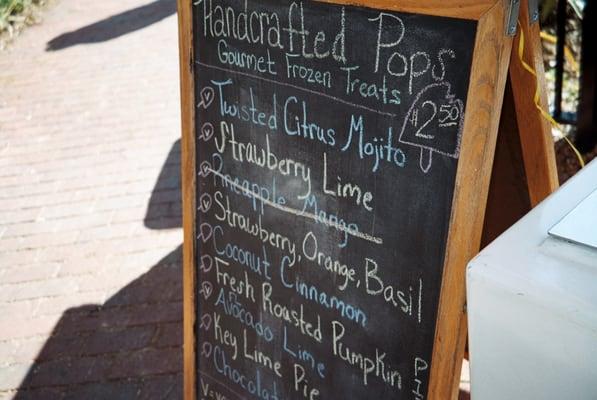 Handcrafted Pops
Gourmet Frozen Treats
$2.50
Twisted Citrus Mojito
Strawberry Lime
Pineapple Mango
Strawberry, Orange, Basil
Coconut Cinnamon
Fresh Roasted Pumpkin
Avocado Lime
Key Lime Pie